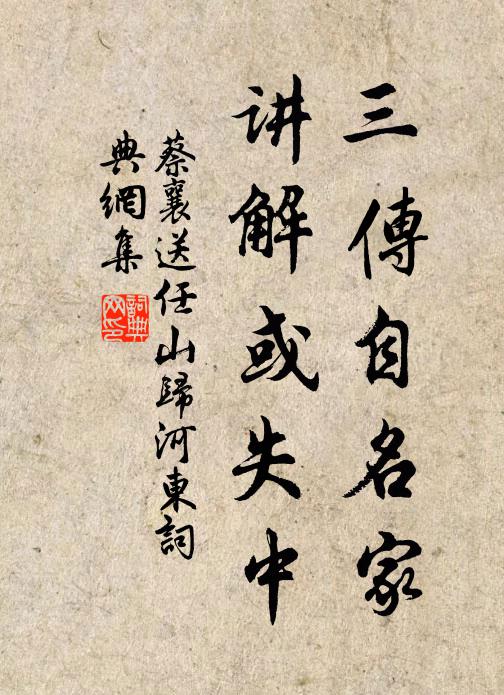 三傳自名家
讲解或失中
蔡襄送任山歸河東詞
典網集
詞典
网印